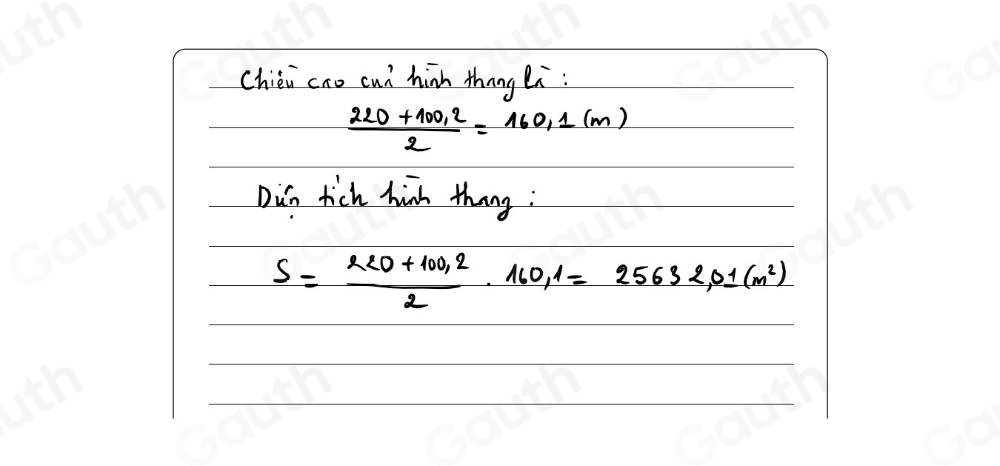 Chiều cao của hình thang là :
220 + 100,2 / 2 = 160,1 (m)
Diện tích hình thang :
S = 220 + 100,2 / 2 . 160,1 = 25632,01 (m²)
Gauth